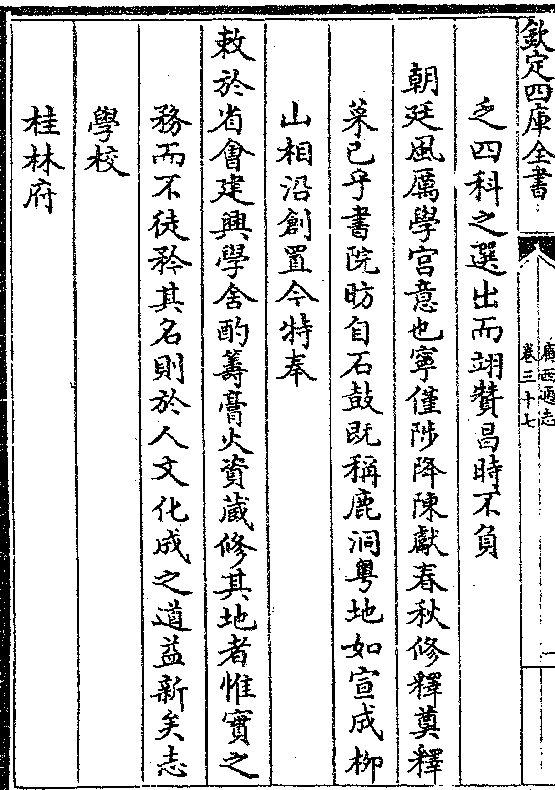 欽定四庫全書
廣西通志
卷三十七
一
乏四科之選出而翊贊昌時不負
朝廷風厲學官意也寧僅陟降陳獻春秋修釋奠釋
菜已乎書院昉自石鼓既稱鹿洞粵地如宣成柳
山相沿創置今特奉
敕於省會建興學舍酌籌膏火資藏修其地者惟實之
務而不徒矜其名則於人文化成之道益新矣志
學校
桂林府